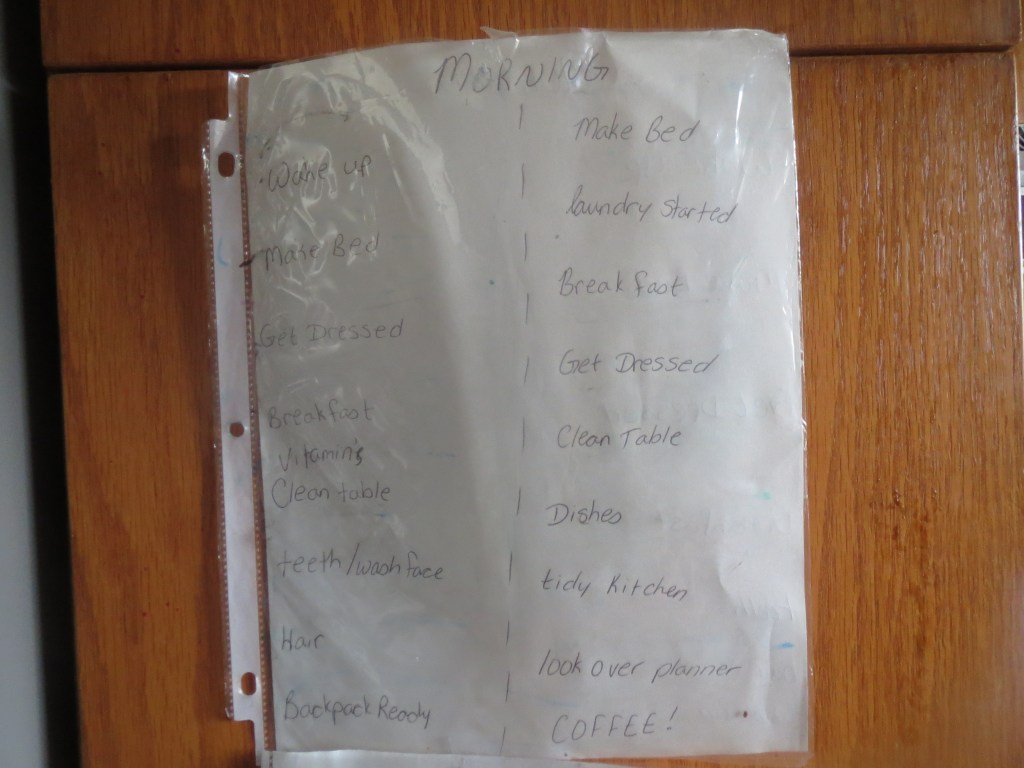 MORNING
Wake up
Make Bed
Get Dressed
Breakfast
Vitamin's
Clean table
teeth/wash face
Hair
Backpack Ready
Make Bed
laundry Started
Breakfast
Get Dressed
Clean Table
Dishes
tidy Kitchen
look over planner
COFFEE!